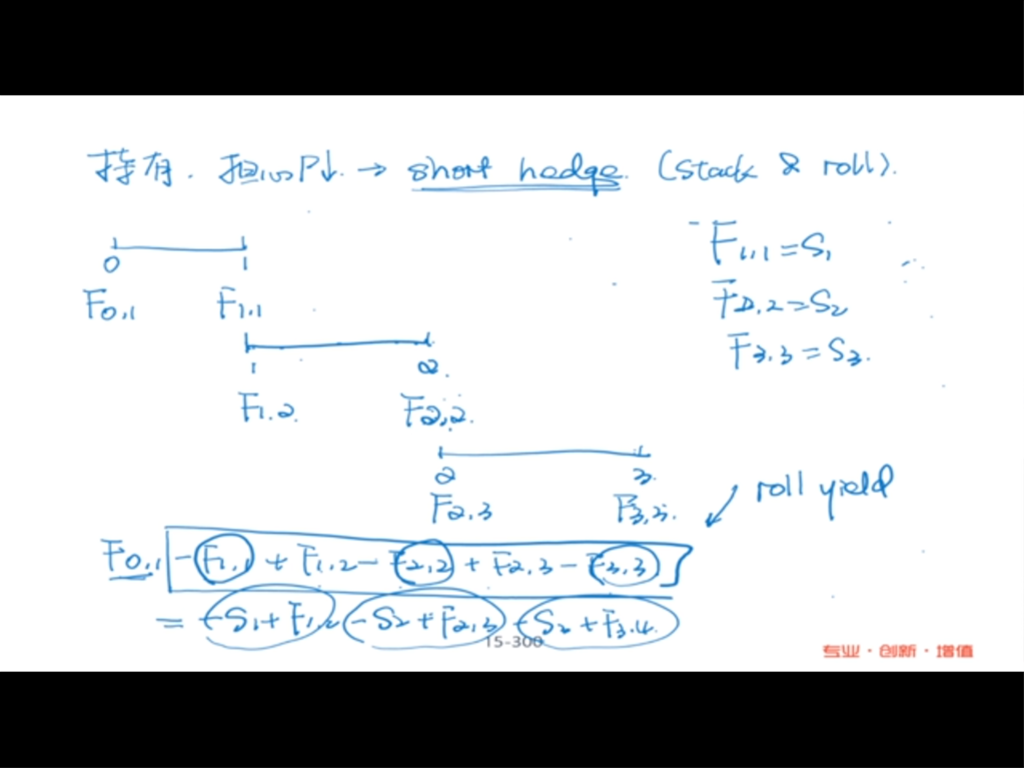 持有. 担心P↓. → short hedge. (stack & roll).
F1,1 = S1
0 1
F0,1 F1,1
F2,2 = S2
F3,3 = S3.
1 2.
F1.2. F2,2.
2 3.
F2,3 F3,3.
roll yield
F0,1 [-F1,1 + F1,2 - F2,2 + F2,3 - F3,3]
= -S1 + F1,2 -S2 + F2,3 -S2 + F3.4.
15-300
专业·创新·增值